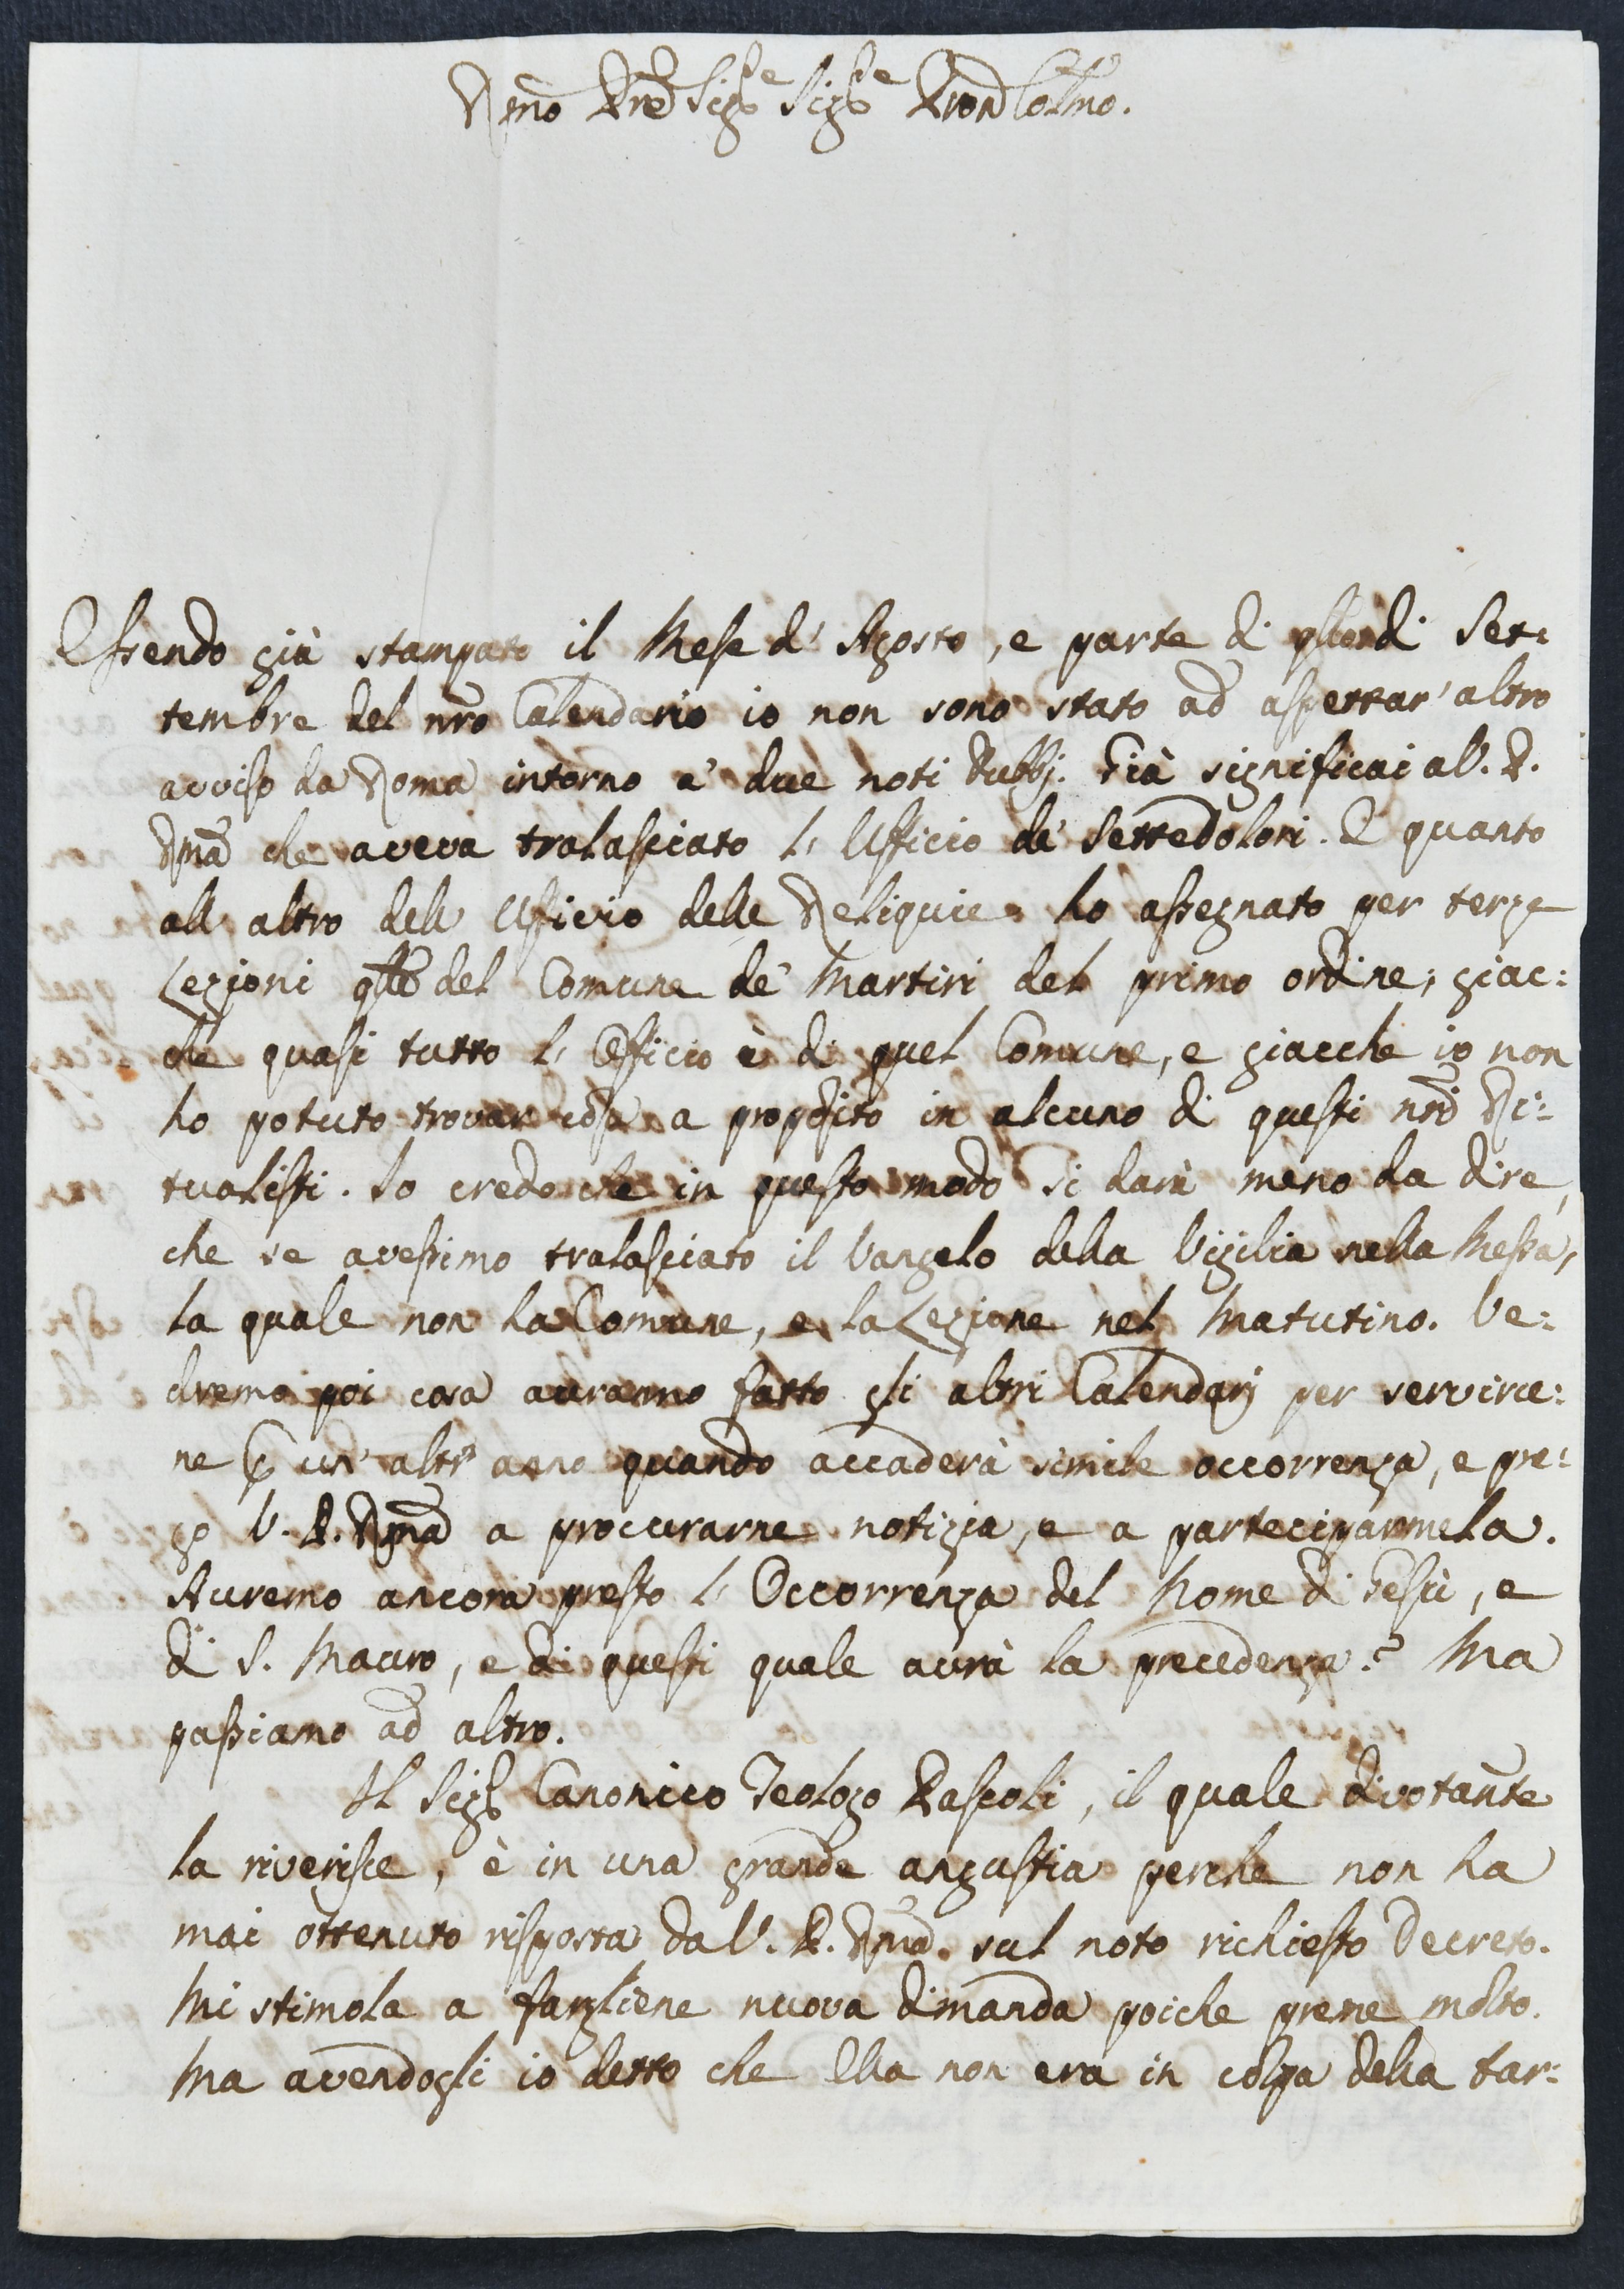 Rmo Pre Sigr Sigr Pron Colmo.
Essendo già stampato il Mese d'Agosto, e parte di qllo di Set:
tembre del nro Calendario io non sono stato ad aspettar' altro
avviso da Roma intorno a' due noti Dubbj. Già significai a V. P.
Rma che aveva tralasciato l'Ufficio de' Settedolori. E quanto
all'altro dell'Ufficio delle Reliquie ho assegnato per terze
Lezioni qlle del Comune de' Martiri del primo ordine; giac:
che quasi tutto l'Officio è di quel Comune, e giacche io non
ho potuto trovar cosa a proposito in alcuno di questi nri Ri:
tualisti. Io credo che in questo modo si darà meno da dire,
che se avessimo tralasciato il Vangelo della Vigilia nella Messa,
la quale non ha Comune, e la Lezione nel Matutino. Ve:
dremo poi cosa avranno fatto gli altri Calendarj per servirce:
ne p un' altr' anno quando accaderà simile occorrenza, e pre:
go V. P. Rma a procurarne notizia, e a parteciparmela.
Avremo ancora presto l'Occorrenza del Nome di Gesù, e
di S. Mauro, e di questi quale avrà la precedenza? Ma
passiamo ad altro.
Il Sigr Canonico Teologo Pascoli, il quale divotamte
la riverisce, è in una grande angustia perche non ha
mai ottenuto risposta da V. P. Rma. sul noto richiesto Decreto.
Mi stimola a fargliene nuova dimanda poiche preme molto.
Ma avendogli io detto che Ella non era in colpa della tar: